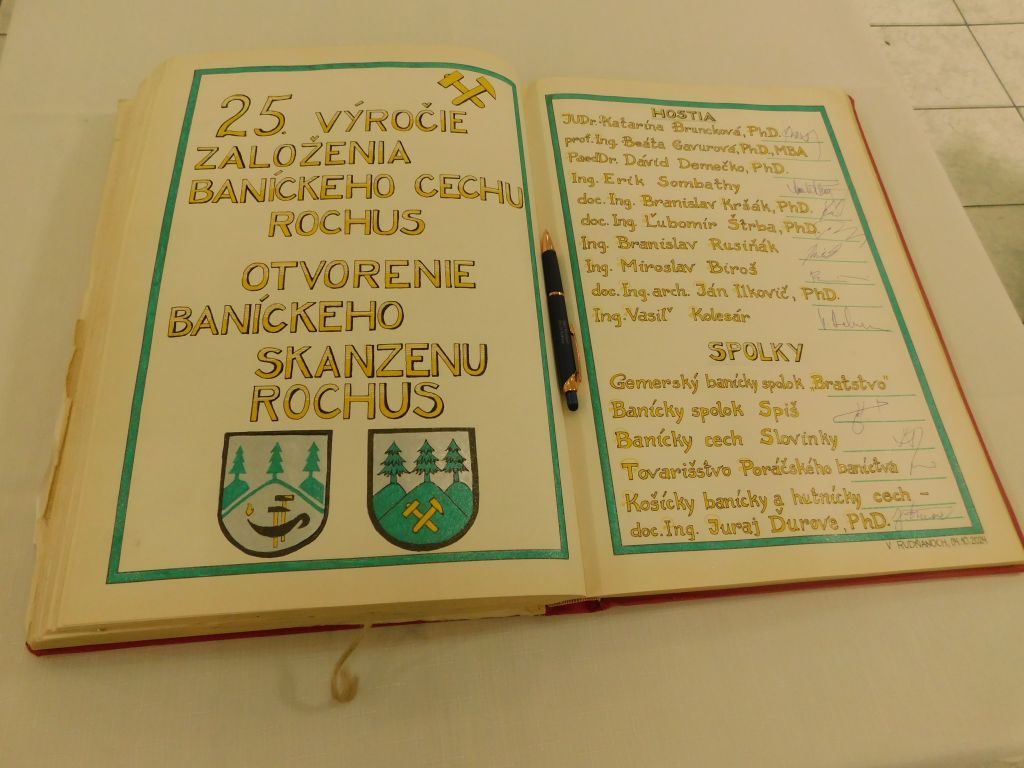 25. VÝROČIE
ZALOŽENIA
BANÍCKEHO CECHU
ROCHUS
OTVORENIE
BANÍCKEHO
SKANZENU
ROCHUS
HOSTIA
JUDr. Katarína Bruncková, PhD.
prof. Ing. Beáta Gavurová, PhD., MBA
PaedDr. Dávid Demečko, PhD.
Ing. Erik Sombathy
doc. Ing. Branislav Kršák, PhD.
doc. Ing. Ľubomír Štrba, PhD.
Ing. Branislav Rusiňák
Ing. Miroslav Biroš
doc. Ing. arch. Ján Ilkovič, PhD.
Ing. Vasiľ Kolesár
SPOLKY
Gemerský banícky spolok „Bratstvo"
Banícky spolok Spiš
Banícky cech Slovinky
Tovarišstvo Poráčského baníctva
Košícky banícky a hutnícky cech -
doc. Ing. Juraj Ďurove, PhD.
V RUDŇANOCH, 04.10.2024